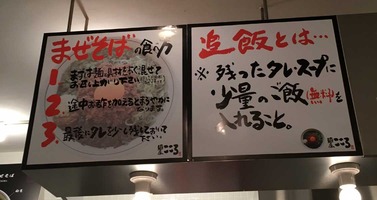 まぜそばの食べ方
1. まずは麺と具材をよく混ぜて
お召し上がり下さい。
2. 途中お酢を加えるとまろやかに
なります。
3. 最後にタレを少し残しておいて
下さい。
こころ
追飯とは…
※残ったタレ、スープに
少量のご飯(無料)を
入れること。
こころ